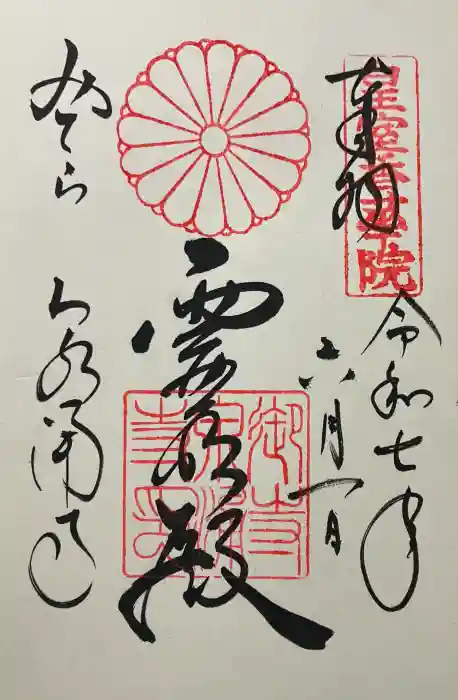 奉拝
皇室香華院
令和七年
六月一日
霊明殿
御寺
泉涌
寺印
みてら
泉涌寺